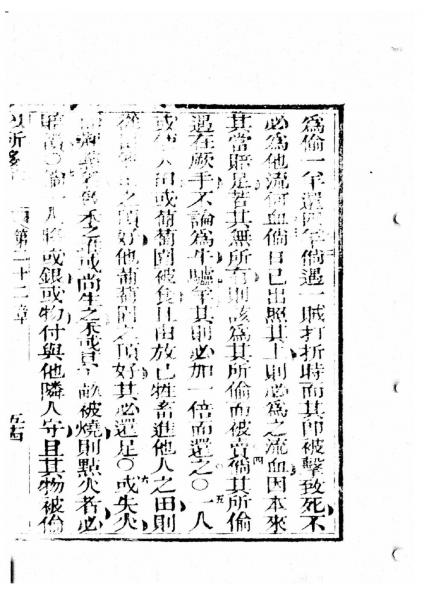 為偷一羊還四羊倘遇一賊打折時而其即被擊致死不
必為他流何血倘日已出照其上則必為之流血因本來
其當賠足若其無所有則該為其所偷而被賣倘其所偷
四
遇在厥手不論為牛驢羊其則必加一倍而還之〇一人
五
或使人田或葡萄園被食且由放己牲畜進他人之田則
從 之頂好他葡萄園之頂好其必還足〇或失火
六
禾之 或尚生之禾或其 被燒則點火者必
賠 〇倘一人將或銀或物付與他隣人守且其物被偷
第二十二章
五